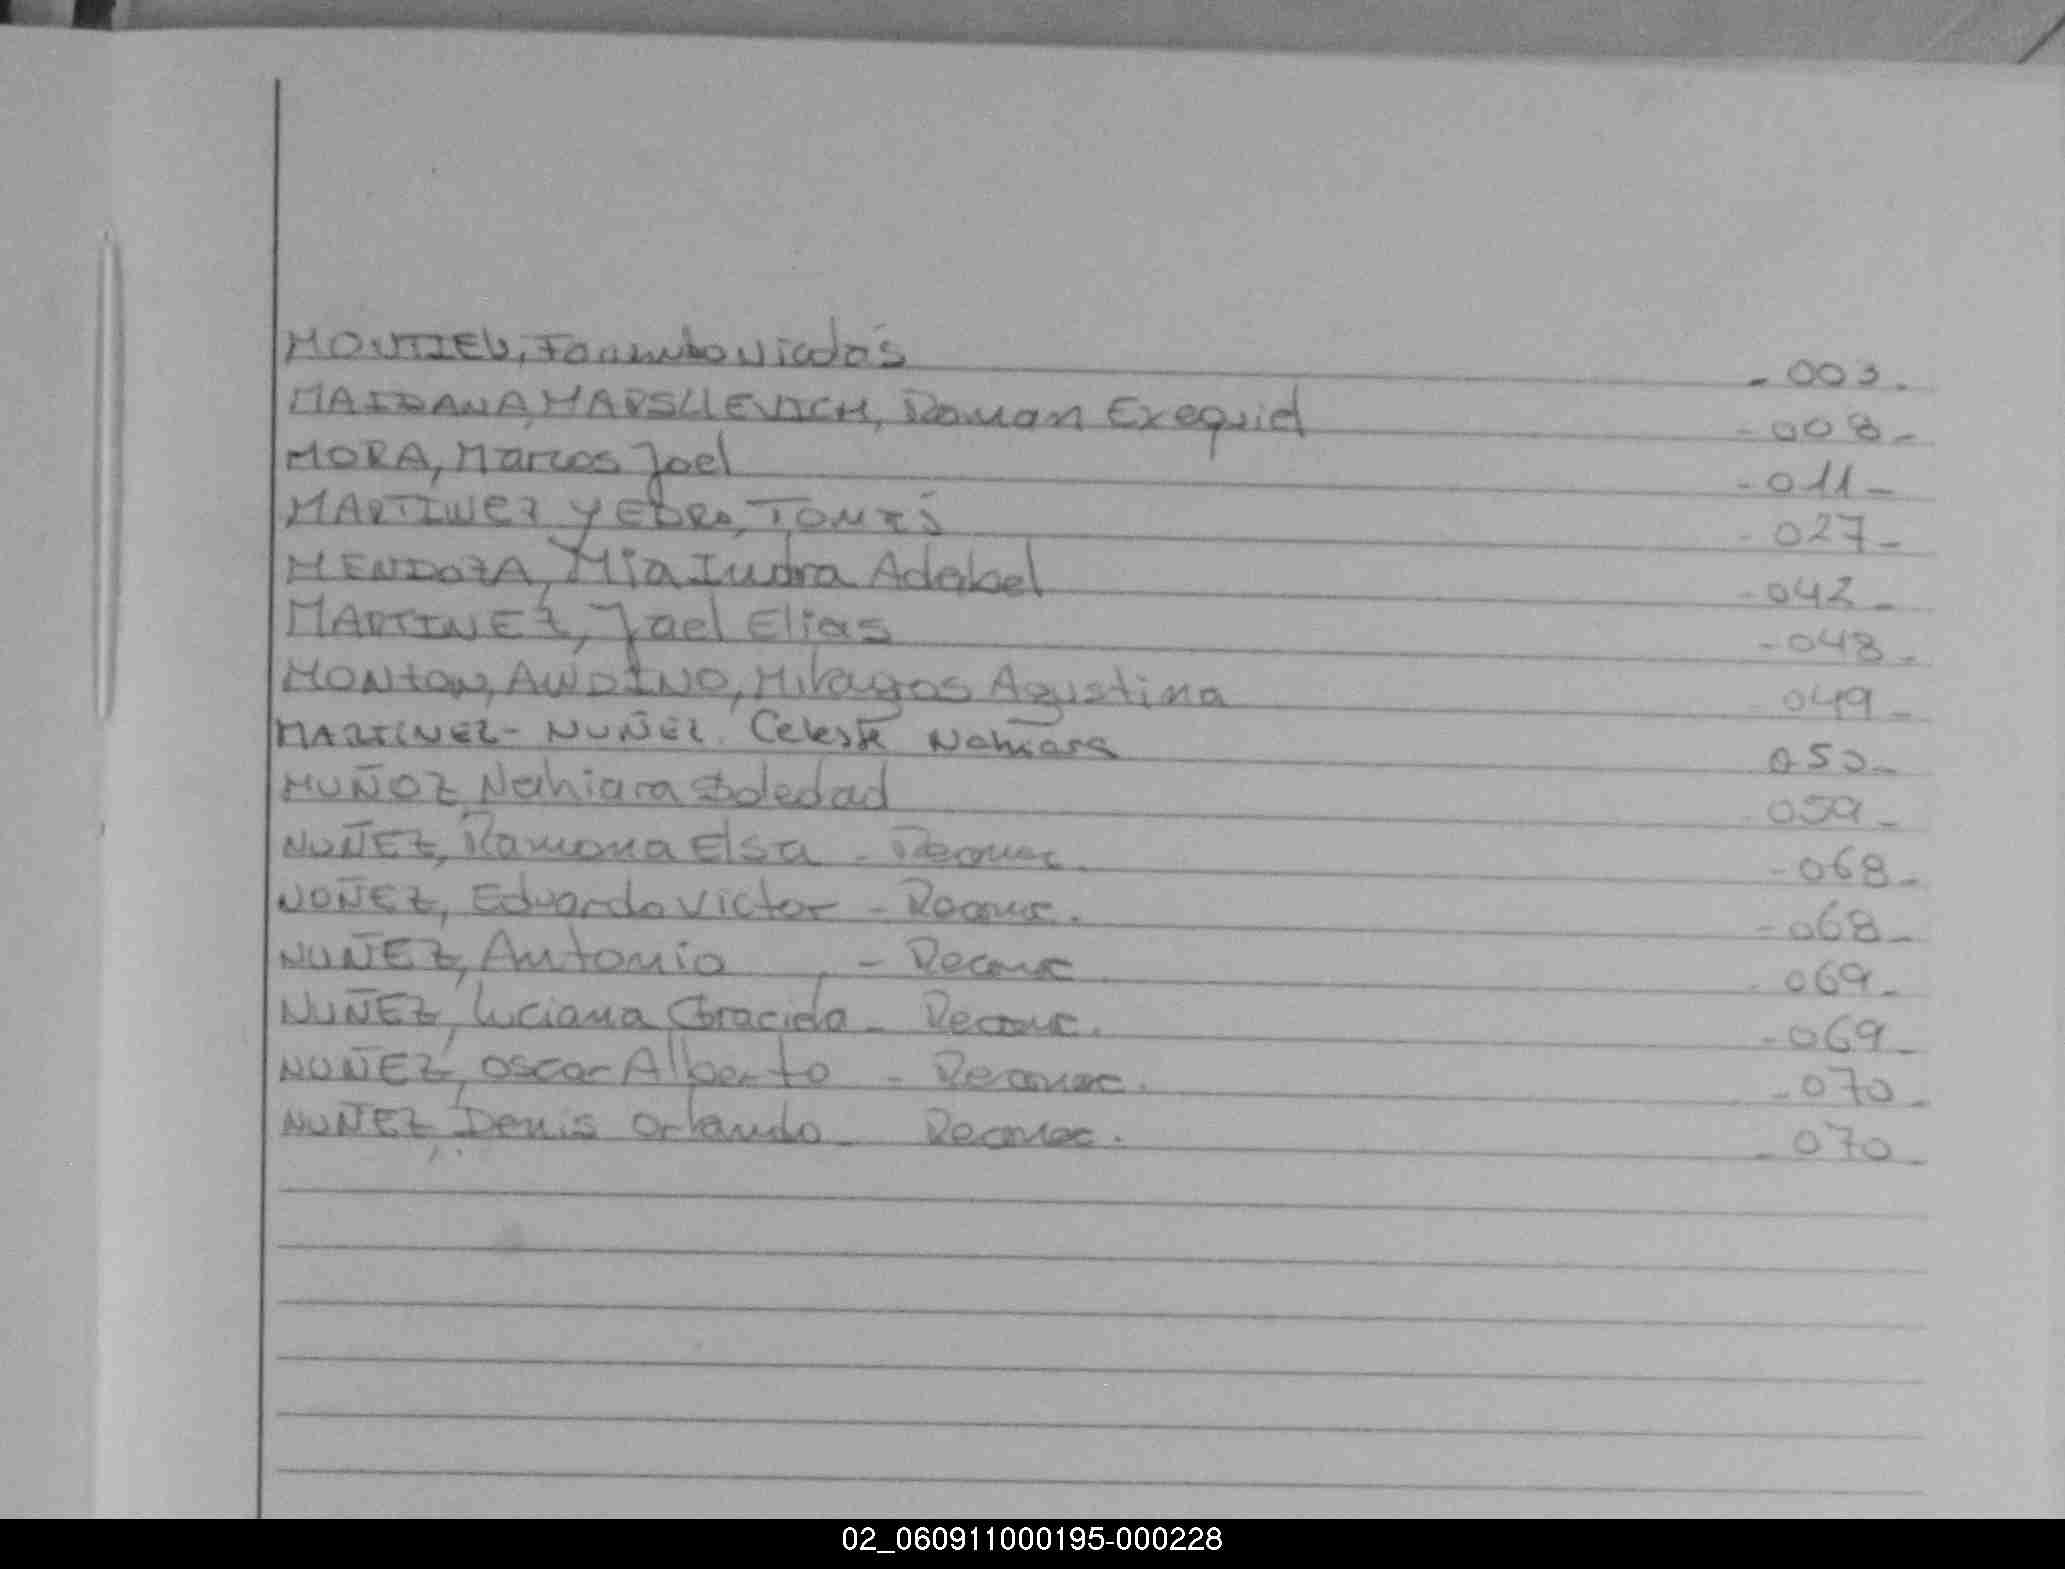 MONTIEL, Facundo Nicolás - 003 -
MAIDANA, MARSILIEVICH, Roman Exequiel - 008 -
MORA, Marcos Joel - 011 -
MARTINEZ YEDRO, TOMÁS - 027 -
MENDOZA, Mia Indra Adabel - 042 -
MARTINEZ, Jael Elias - 048 -
MONTON, ANDINO, Milagros Agustina 049 -
MARTINEZ - NUÑEZ. Celeste Nahiara 050 -
MUÑOZ, Nahiara Soledad 059 -
NUÑEZ, Ramona Elsa - Reconoc. - 068 -
NUÑEZ, Eduardo Victor - Reconoc. - 068 -
NUÑEZ, Antonio - Reconoc - 069 -
NUÑEZ, Luciana Graciela - Reconoc. - 069 -
NUÑEZ, Oscar Alberto - Reconoc. - 070 -
NUÑEZ, Denis Orlando - Reconoc. - 070 -
02_060911000195-000228